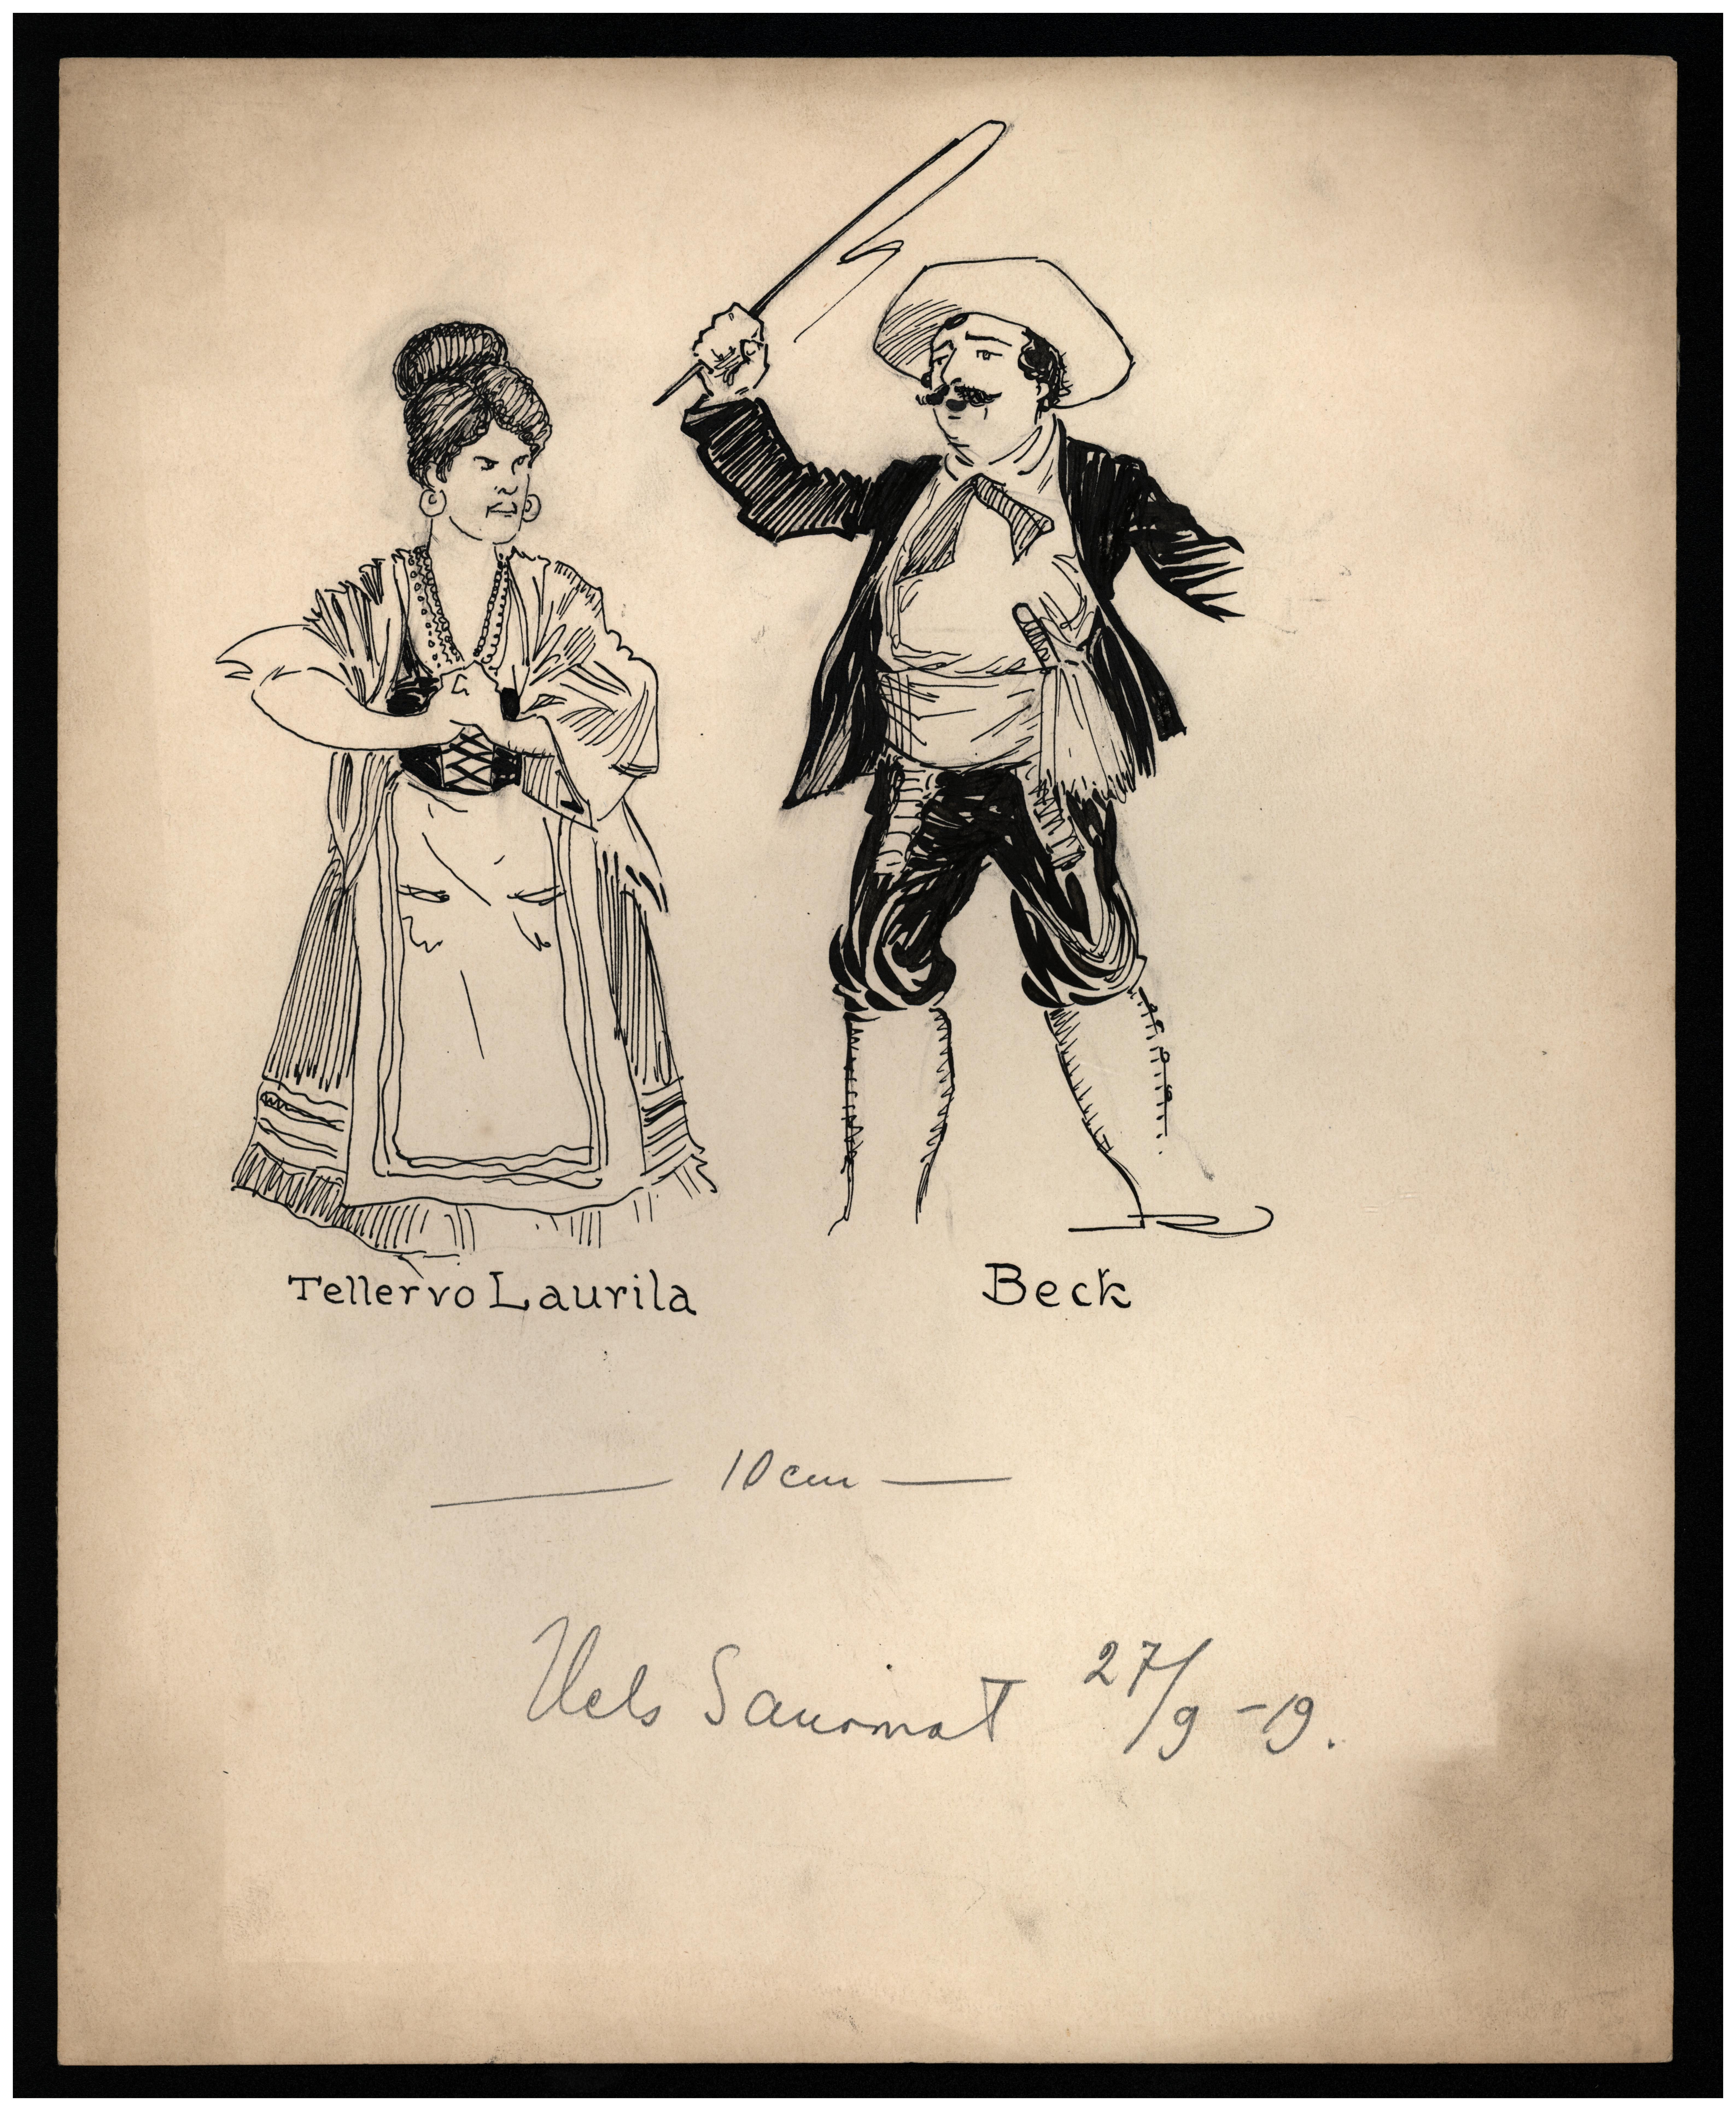 Tellervo Laurila
Beck
10 cm
Hels Sanomat 27/9 -19.